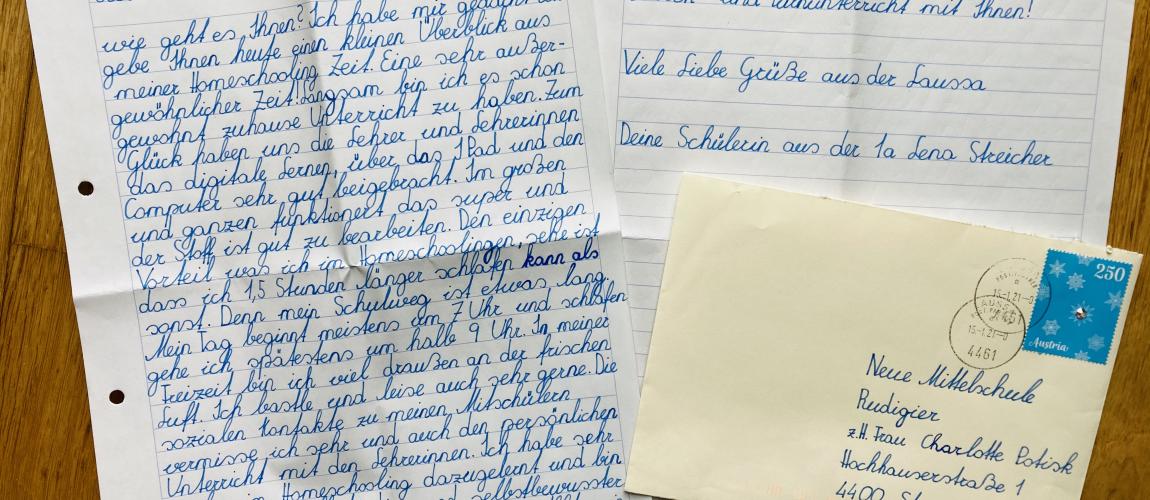 wie geht es Ihnen? Ich habe mir
gebe Ihnen heute einen kleinen Überblick aus
meiner Homeschooling Zeit. Eine sehr außer-
gewöhnlicher Zeit! Langsam bin ich es schon
gewohnt zuhause Unterricht zu haben. Zum
Glück haben uns die Lehrer und Lehrerinnen
das digitale Lernen, über das IPad und den
Computer sehr gut beigebracht. Im großen
und ganzen funktionert das super und
der Stoff ist gut zu bearbeiten. Den einzigen
Vorteil was ich im Homeschoolingen, sehe ist
dass ich 1,5 Stunden länger schlafen kann als
sonst. Denn mein Schulweg ist etwas lang.
Mein Tag beginnt meistens um 7 Uhr und schlafen
gehe ich spätestens um halb 9 Uhr. In meiner
Freizeit bin ich viel draußen an der frischen
Luft. Ich bastle und leise auch sehr gerne. Die
sozialen Kontakte zu meinen Mitschülern
vermisse ich sehr und auch den persönlichen
Unterricht mit den Lehrerinnen. Ich habe sehr
Homeschooling dazugelernt und bin
selbstbewusster
und unterricht mit Ihnen!
Viele Liebe Grüße aus der Laussa
Deine Schülerin aus der 1a Lena Streicher
250
Austria
15-1.21
4461
Neue Mittelschule
Rudigier
z.H. Frau Charlotte Potisk
Hochhauserstraße 1
4400